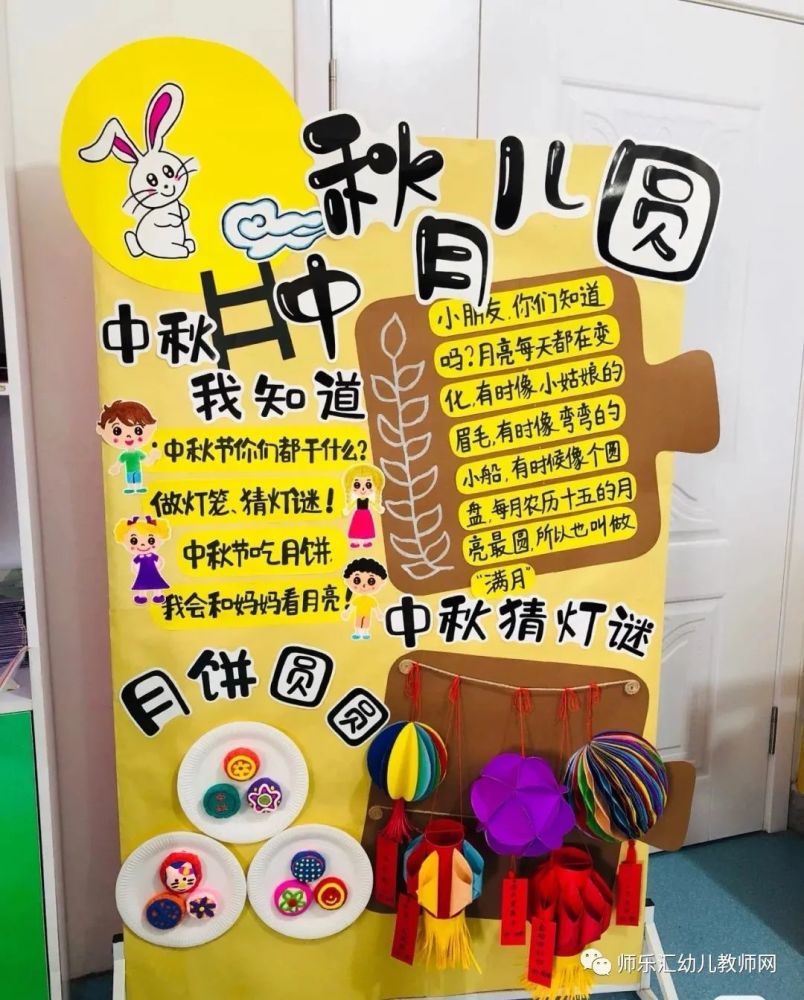 中秋月儿圆
中秋
我知道
中秋节你们都干什么?
做灯笼、猜灯谜!
中秋节吃月饼
我会和妈妈看月亮!
小朋友,你们知道
吗?月亮每天都在变
化,有时像小姑娘的
眉毛,有时像弯弯的
小船,有时候像个圆
盘,每月农历十五的月
亮最圆,所以也叫做
"满月"
中秋猜灯谜
月饼圆圆
师乐汇幼儿教师网